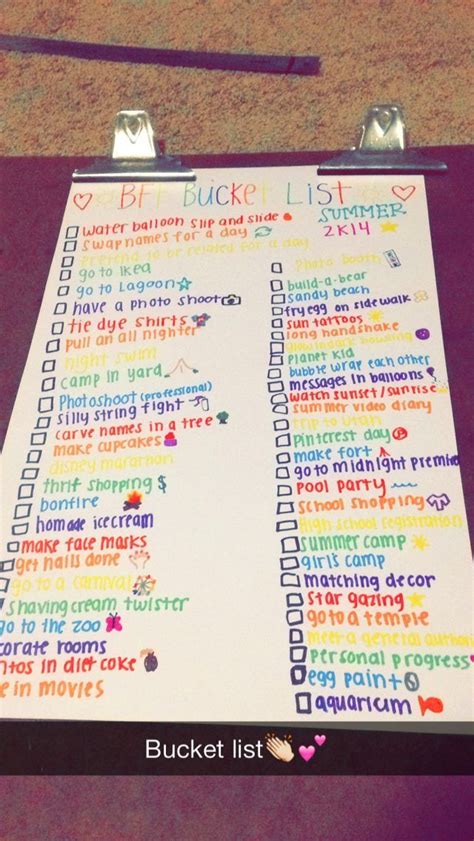 ♡ BFF BUCKET LIST ♡
SUMMER
2K14
water balloon slip and slide
swap names for a day
pretend to be related for a day
go to Ikea
go to Lagoon
have a photo shoot
tie dye shirts
pull an all nighter
night swim
camp in yard
Photoshoot (professional)
silly string fight
carve names in a tree
make cupcakes
disney marathon
thrift shopping $
bonfire
homade icecream
make face masks
get nails done
go to a carnival
shaving cream twister
go to the zoo
corate rooms
ntos in diet coke
e in movies
Photo booth
build-a-bear
sandy beach
fry egg on sidewalk
sun tattoos
long handshake
glow in dark
Planet kid
bubble wrap each other
messages in balloons
watch sunset/sunrise
summer video diary
trip to Utah
pinterest day
make fort
go to midnight premire
pool party
school shopping
High school registration
summer camp
girl's camp
matching decor
star gazing
go to a temple
meet a general author
Personal progress
egg paint
aquarium
Bucket list👏💕